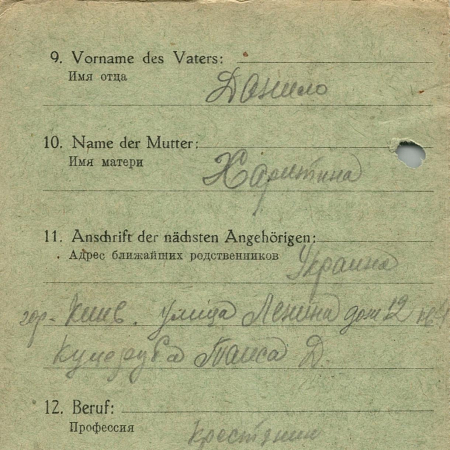 9. Vorname des Vaters:
Имя отца
Данило
10. Name der Mutter:
Имя матери
Харитина
11. Anschrift der nächsten Angehörigen:
Адрес ближайших родственников
Украина
гор. Киив. улица Ленина дом 12
Таиса Д.
12. Beruf:
Профессия
крестянин